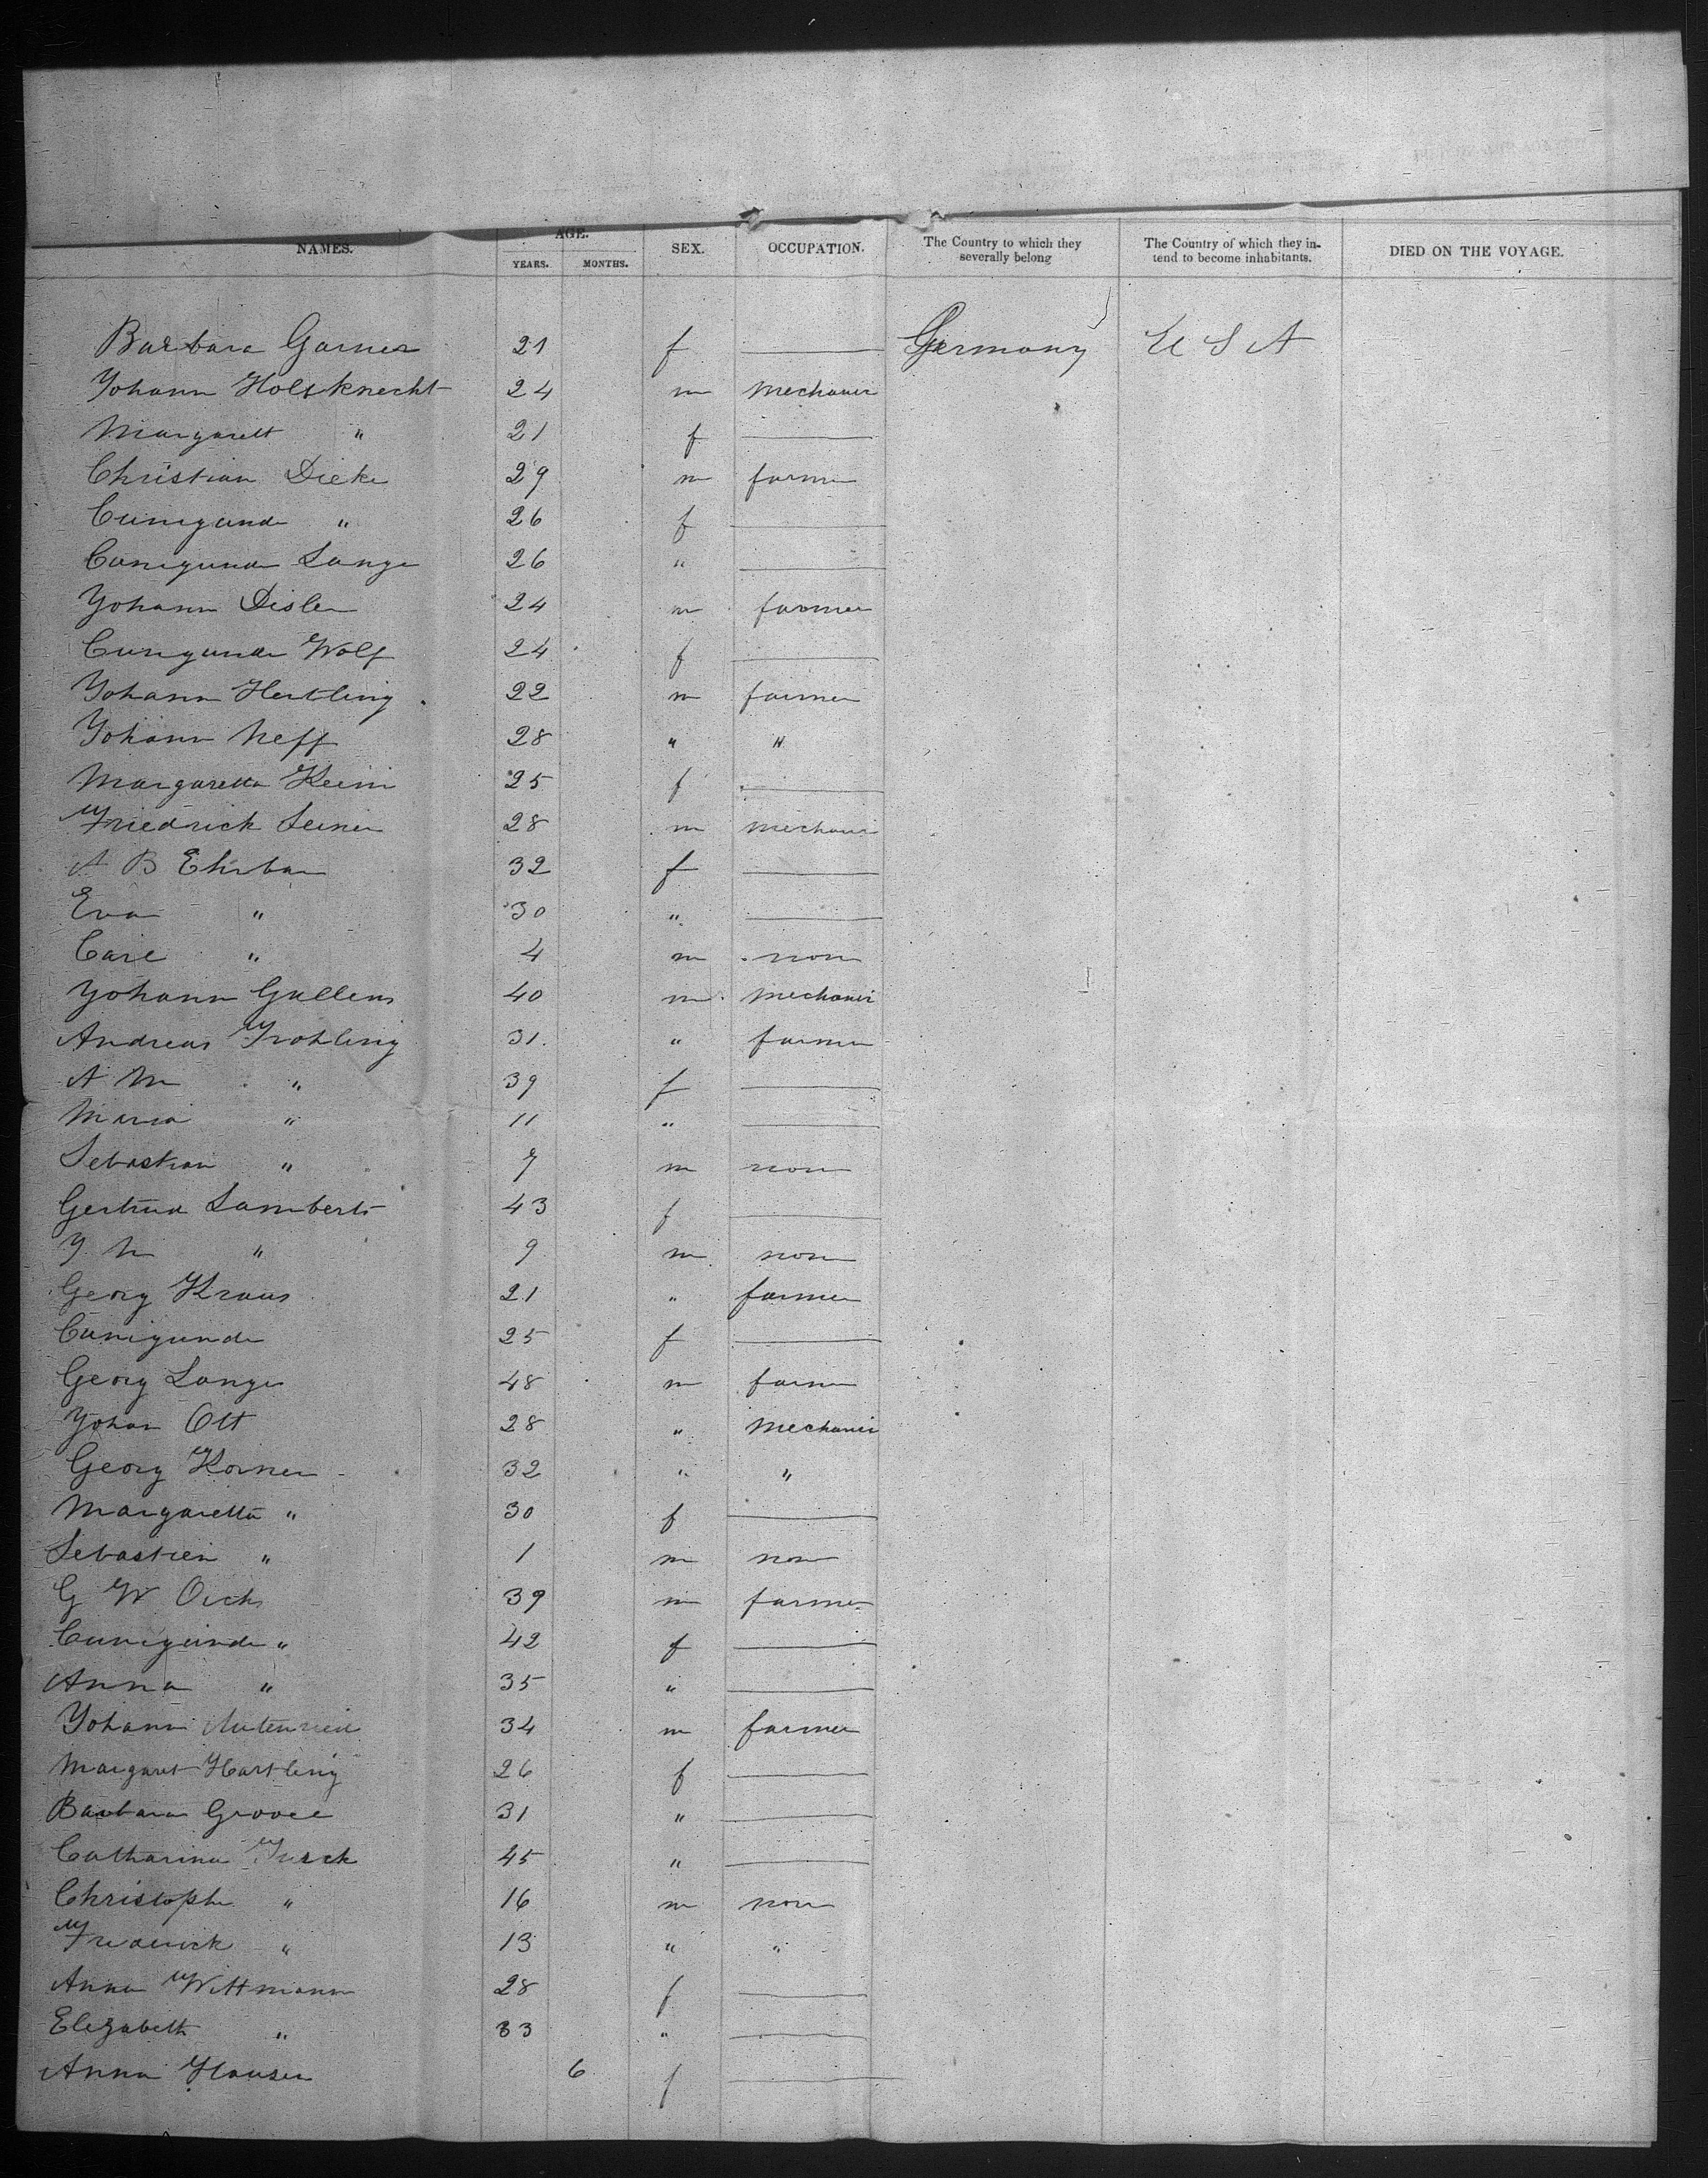 NAMES. AGE. SEX. OCCUPATION. The Country to which they severally belong The Country of which they intend to become inhabitants. DIED ON THE VOYAGE.
YEARS. MONTHS.
Barbara Garner 21 f — Germany U S A
Johann Holsknecht 24 m Mechanic
Margarett " 21 f —
Christian Dicke 29 m farmer
Cunigunde " 26 f —
Cunigunde Lange 26 " —
Johann Disler 24 m farmer
Cunigunde Wolf 24 f —
Johann Hertling 22 m farmer
Johann Neff 28 " "
Margaretta Keim 25 f —
Friedrick 28 m Mechanic
A B Ehrbar 32 f —
Eva " 30 " —
Carl " 4 m non
Johann Gullens 40 m Mechanic
Andreas Frohling 31 " farmer
A M " 39 f —
Maria " 11 " —
Sebastian " 7 m non
Gertrud Lamberts 43 f —
J N " 9 m non
Georg Kraus 21 " farmer
Cunigunde 25 f —
Georg Lange 48 m farmer
Johan Ott 28 " Mechanic
Georg Korner 32 " "
Margaretta " 30 f —
Sebastien " 1 m non
G W Ochs 39 m farmer
Cunigunde " 42 f —
Anna " 35 " —
Johann Autenrieu 34 m farmer
Margaret Hartling 26 f —
Barbara Groove 31 " —
Catharina 45 " —
Christoph " 16 m non
Frederick " 13 " "
Anna Wittmann 28 f —
Elizabeth " 33 " —
Anna Hauser 6 f —